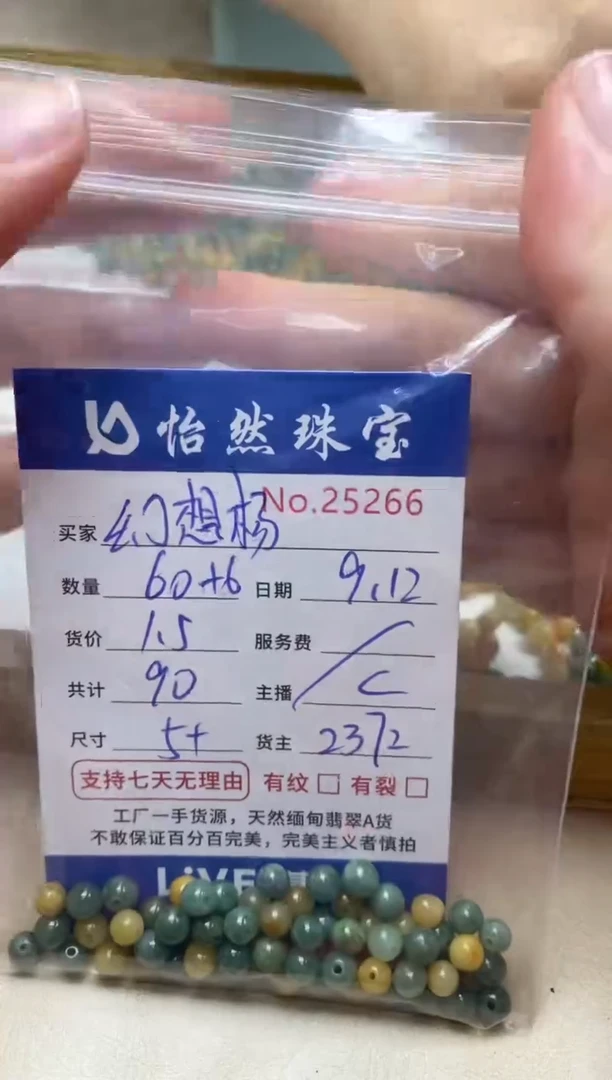 怡然珠宝
No.25266
买家 幻想杨
数量 60+6 日期 9.12
货价 1.5 服务费 /
共计 90 主播 C
尺寸 5+ 货主 2372
支持七天无理由 有纹 □ 有裂 □
工厂一手货源，天然缅甸翡翠A货
不敢保证百分百完美，完美主义者慎拍
LiVE